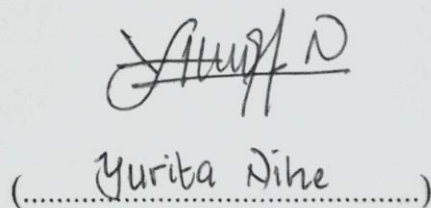 Yurita Nihe
(............................................)